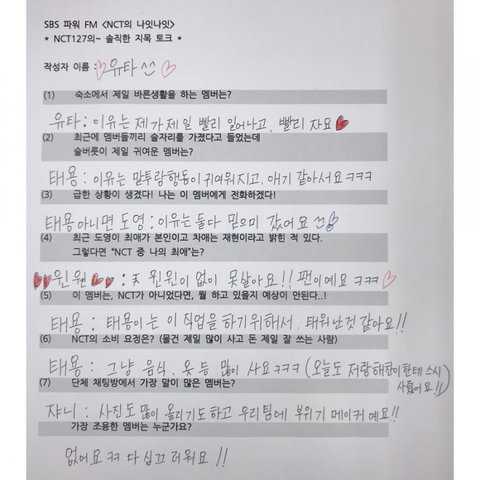 SBS 파워 FM <NCT의 나잇나잇>
* NCT127의~ 솔직한 지목 토크 *
작성자 이름 : ♡유타^^♡
(1) 숙소에서 제일 바른생활을 하는 멤버는?
유타 : 이유는 제가 제일 빨리 일어나고, 빨리 자요♥
(2) 최근에 멤버들끼리 술자리를 가졌다고 들었는데
술버릇이 제일 귀여운 멤버는?
태용 : 이유는 말투랑 행동이 귀여워지고, 애기 같아서요ㅋㅋㅋ
(3) 급한 상황이 생겼다! 나는 이 멤버에게 전화하겠다!
태용 아니면 도영 : 이유는 둘다 믿으미 갔어요 ♡
(4) 최근 도영이 최애가 본인이고 차애는 재현이라고 밝힌 적 있다.
그렇다면 "NCT 중 나의 최애"는?
♥♥윈윈♥♥ : 天 윈윈이 없이 못살아요!! 팬이예요 ㅋㅋㅋ♡
(5) 이 멤버는, NCT가 아니었다면, 뭘 하고 있을지 예상이 안된다..!
태용 : 태용이는 이 직업을 하기위해서. 태워난것 같아요!!
(6) NCT의 소비 요정은? (물건 제일 많이 사고 돈 제일 잘 쓰는 사람)
태용 : 그냥 음식. 옷 등 많이 사요ㅋㅋㅋ (오늘도 저랑 해찬이한테 스시
사줬어요!!)
(7) 단체 채팅방에서 가장 말이 많은 멤버는?
쟈니 : 사진도 많이 올리기도 하고 우리팀에 부위기 메이커 예요!!
가장 조용한 멤버는 누군가요?
없어요 ㅋㅋ 다 십끄러워요 !!